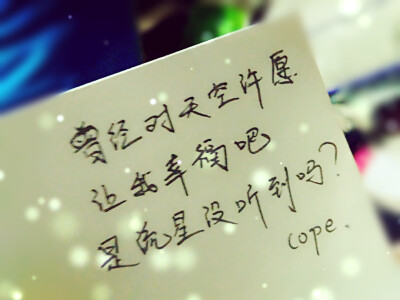 曾经对天空许愿
让我幸福吧
是流星没听到吗?
cope.